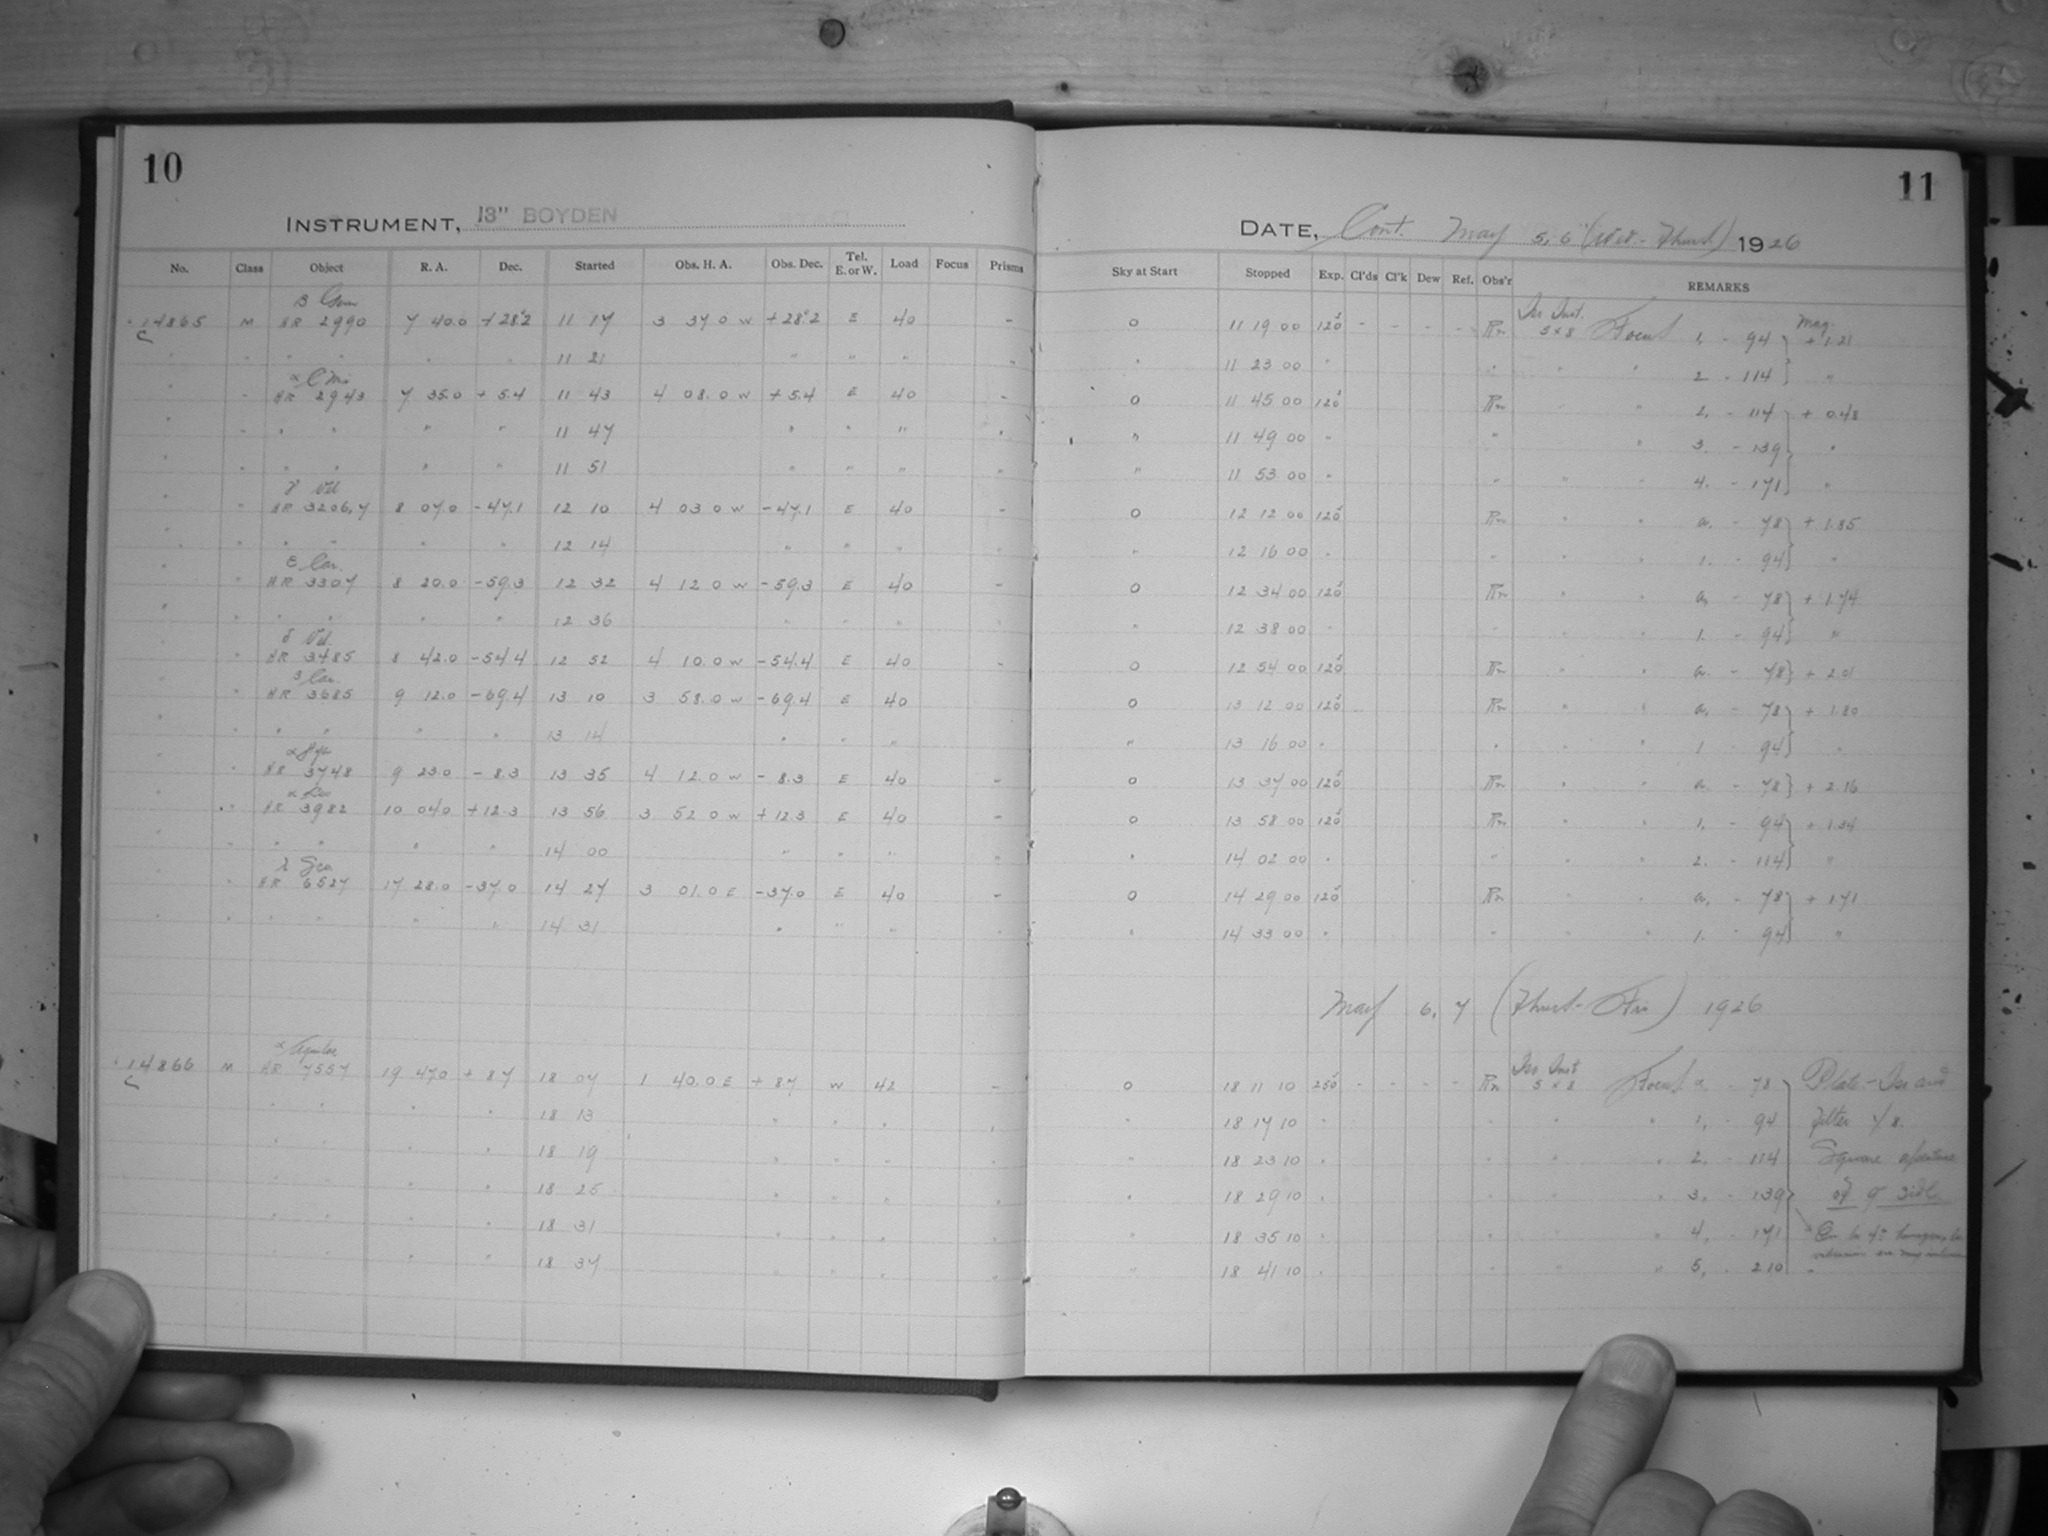 10
INSTRUMENT, 13" BOYDEN
No. Class Object R. A. Dec. Started Obs. H. A. Obs. Dec. Tel. E. or W. Load Focus Prisms
β Gem
14865 M HR 2990 7 40.0 +28°.2 11 17 3 37.0 W +28°.2 E 40 -
" " " " " 11 21 " " " "
α C Mi
" HR 2943 7 35.0 + 5.4 11 43 4 08.0 W + 5.4 E 40 -
" " " " " 11 47 " " " "
" " " " " 11 51 " " " "
γ Vel
" HR 3206,7 8 07.0 -47.1 12 10 4 03 0 W -47.1 E 40 -
" " " " " 12 14 " " "
ε Car.
" HR 3307 8 20.0 -59.3 12 32 4 12 0 W -59.3 E 40 -
" " " " " 12 36 " " "
δ Vel.
" HR 3485 8 42.0 -54.4 12 52 4 10.0 W -54.4 E 40 -
β Car.
" HR 3685 9 12.0 -69.4 13 10 3 58.0 W -69.4 E 40
" " " " " 13 14 " " "
α Hya
" HR 3748 9 23.0 - 8.3 13 35 4 12.0 W - 8.3 E 40 -
α Leo
" HR 3982 10 04.0 +12.3 13 56 3 52 0 W +12.3 E 40 -
" " " " " 14 00 " " " "
λ Sco
" HR 6527 17 28.0 -37.0 14 27 3 01.0 E -37.0 E 40 -
" " " " " 14 31 " " " "
α Aquilae
14866 M HR 7557 19 47.0 + 8.7 18 07 1 40.0 E + 8.7 W 42 -
" " " " 18 13 " " " "
" " " " 18 19 " " " "
" " " " 18 25 " " " "
" " " " 18 31 " " " "
" " " " 18 37 " " " "
11
DATE, Cont. May 5, 6 (Wed - Thurs) 1926
Sky at Start Stopped Exp. Cl'ds Cl'k Dew Ref. Obs'r REMARKS
Iso Inst. Mag.
0 11 19 00 120s - - - - Rn 5 x 8 Focus 1, - 94 + 1.21
" 11 23 00 " " " " 2 - 114 "
0 11 45 00 120s Rn " " 2, - 114 + 0.48
" 11 49 00 " " " 3. - 139 "
" 11 53 00 " " " " 4. - 171 "
0 12 12 00 120s Rn " " a. - 78 + 1.85
" 12 16 00 " " " " 1. - 94 "
0 12 34 00 120s Rn " " a, - 78 + 1.74
" 12 38 00 " " " " 1. - 94 "
0 12 54 00 120s Rn " " a. - 78 + 2.01
0 13 12 00 120s Rn " " a, - 78 + 1.80
" 13 16 00 " " " " 1 - 94 "
0 13 37 00 120s Rn " " a - 78 + 2.16
0 13 58 00 120s Rn " " 1, - 94 + 1.34
" 14 02 00 " " " " 2. - 114 "
0 14 29 00 120s Rn " " a, - 78 + 1.71
" 14 33 00 " " " " 1. - 94 "
May 6, 7 (Thurs - Fri) 1926
Iso Inst
0 18 11 10 250s - - - - Rn 5 x 8 Focus a - 78 Plate - Iso and
" 18 17 10 " " " " 1, - 94 filter
" 18 23 10 " " " " 2. - 114 Square aperture
" 18 29 10 " " " " 3, - 139 of 9" side.
" 18 35 10 " " " " 4, - 171
" 18 41 10 " " " " 5, - 210